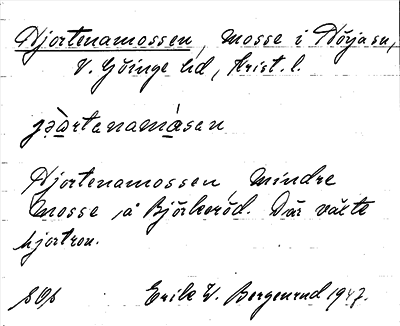 Hjortenamossen, mosse i Hörja sn,
V. Göinge hd, Krist. l.
jɔ̀artenamåsen
Hjortenamossen, mindre
mosse å Björkeröd. Där växte
hjortron.
Erik W. Bergenrud 1947.